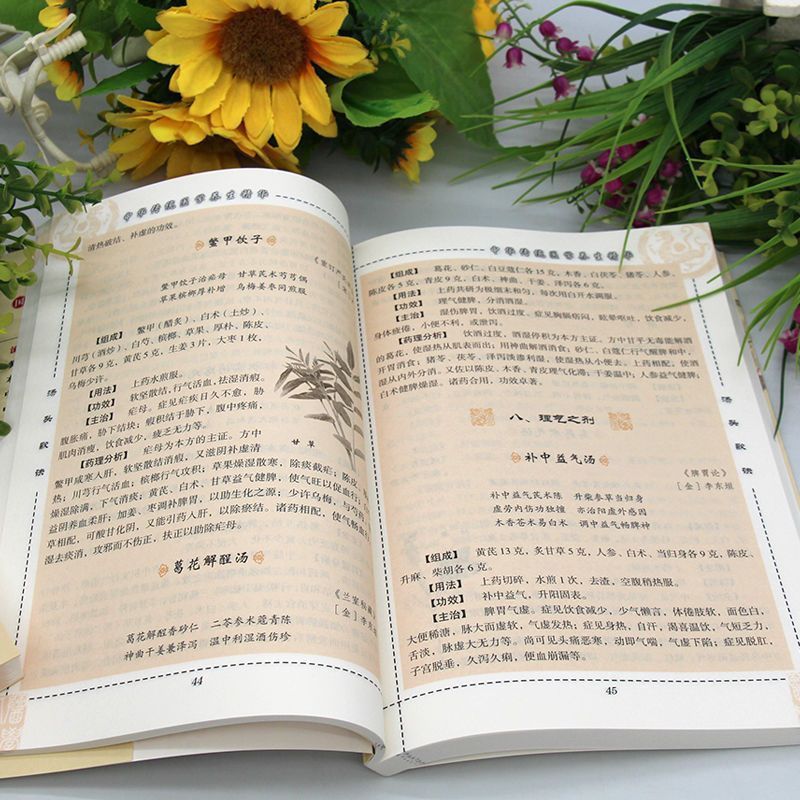 中华传统国学养生精华
清热破结、补虚的功效。
鳖甲饮子
《重订严
鳖甲饮子治疟母 甘草芪术芍芎偶
草果槟榔厚朴增 乌梅姜枣同煎服
【组成】 鳖甲(醋炙)、白术(土炒)、
川芎(酒炒)、白芍、槟榔、草果、厚朴、陈皮、
甘草各9克,黄芪5克,生姜3片,大枣1枚,
乌梅少许。
【用法】 上药水煎服。
【功效】 软坚散结,行气活血,祛湿消瘕。
【主治】 疟母。症见疟疾日久不愈,胁
腹胀痛,胁下结块;瘕积结于胁下,腹中疼痛,
肌肉消瘦,饮食减少,疲乏无力等。
【药理分析】 疟母为本方的主证。方中
鳖甲咸寒入肝,软坚散结消瘕,又滋阴补虚清
热;川芎行气活血;槟榔行气攻积;草果燥湿散寒,除痰截疟;陈皮、
燥湿除满,下气消痰;黄芪、白术、甘草益气健脾,使气旺以促血行;白
益阴养血柔肝;加姜、枣调补脾胃,以助生化之源;少许乌梅,与芍药、
草相配,可酸甘化阴,又能引药入肝,以除瘀结。诸药相配,使气畅血行
湿去痰消,攻邪而不伤正,扶正以助除疟母。
甘草
葛花解酲汤
《兰室秘藏
[金]李东垣
葛花解酲香砂仁 二苓参术蔻青陈
神曲干姜兼泽泻 温中利湿酒伤珍
44
汤头歌诀
中华传统国学养生精华
【组成】 葛花、砂仁、白豆蔻仁各15克,木香、白茯苓、猪苓、人参、
陈皮各5克,青皮9克,白术、神曲、干姜、泽泻各6克。
【用法】 上药共研为极细末和匀,每次用白开水调服。
【功效】 理气健脾,分消酒湿。
【主治】 湿伤脾胃,饮酒过度,症见胸膈痞闷,眩晕呕吐,饮食减少,
身体疲倦,小便不利,或泄泻。
【药理分析】 饮酒过度,酒湿停积为本方主证。方中甘平无毒能解酒
的葛花,使湿热从肌表而出;用神曲解酒消食;砂仁、白蔻仁行气醒脾和中,
开胃消食;猪苓、茯苓、泽泻淡渗利湿,使湿热从小便去。上药相配,使酒
湿从内外分消。又佐以陈皮、木香、青皮理气化滞;干姜温中;人参益气健脾,
白术健脾燥湿。诸药合用,功效卓著。
八、理气之剂
补中益气汤
《脾胃论》
[金]李东垣
补中益气芪术陈 升柴参草当归身
虚劳内伤功独擅 亦治阳虚外感因
木香苍术易白术 调中益气畅脾神
【组成】 黄芪13克,炙甘草5克,人参、白术、当归身各9克,陈皮、
升麻、柴胡各6克。
【用法】 上药切碎,水煎1次,去渣,空腹稍热服。
【功效】 补中益气,升阳固表。
【主治】 脾胃气虚。症见饮食减少,少气懒言,体倦肢软,面色白,
大便稀溏,脉大而虚软,气虚发热;症见身热,自汗,渴喜温饮,气短乏力,
舌淡,脉虚大无力等。尚可见头痛恶寒,动即气喘,气虚下陷;症见脱肛,
子宫脱垂,久泻久痢,便血崩漏等。
45
汤头歌诀